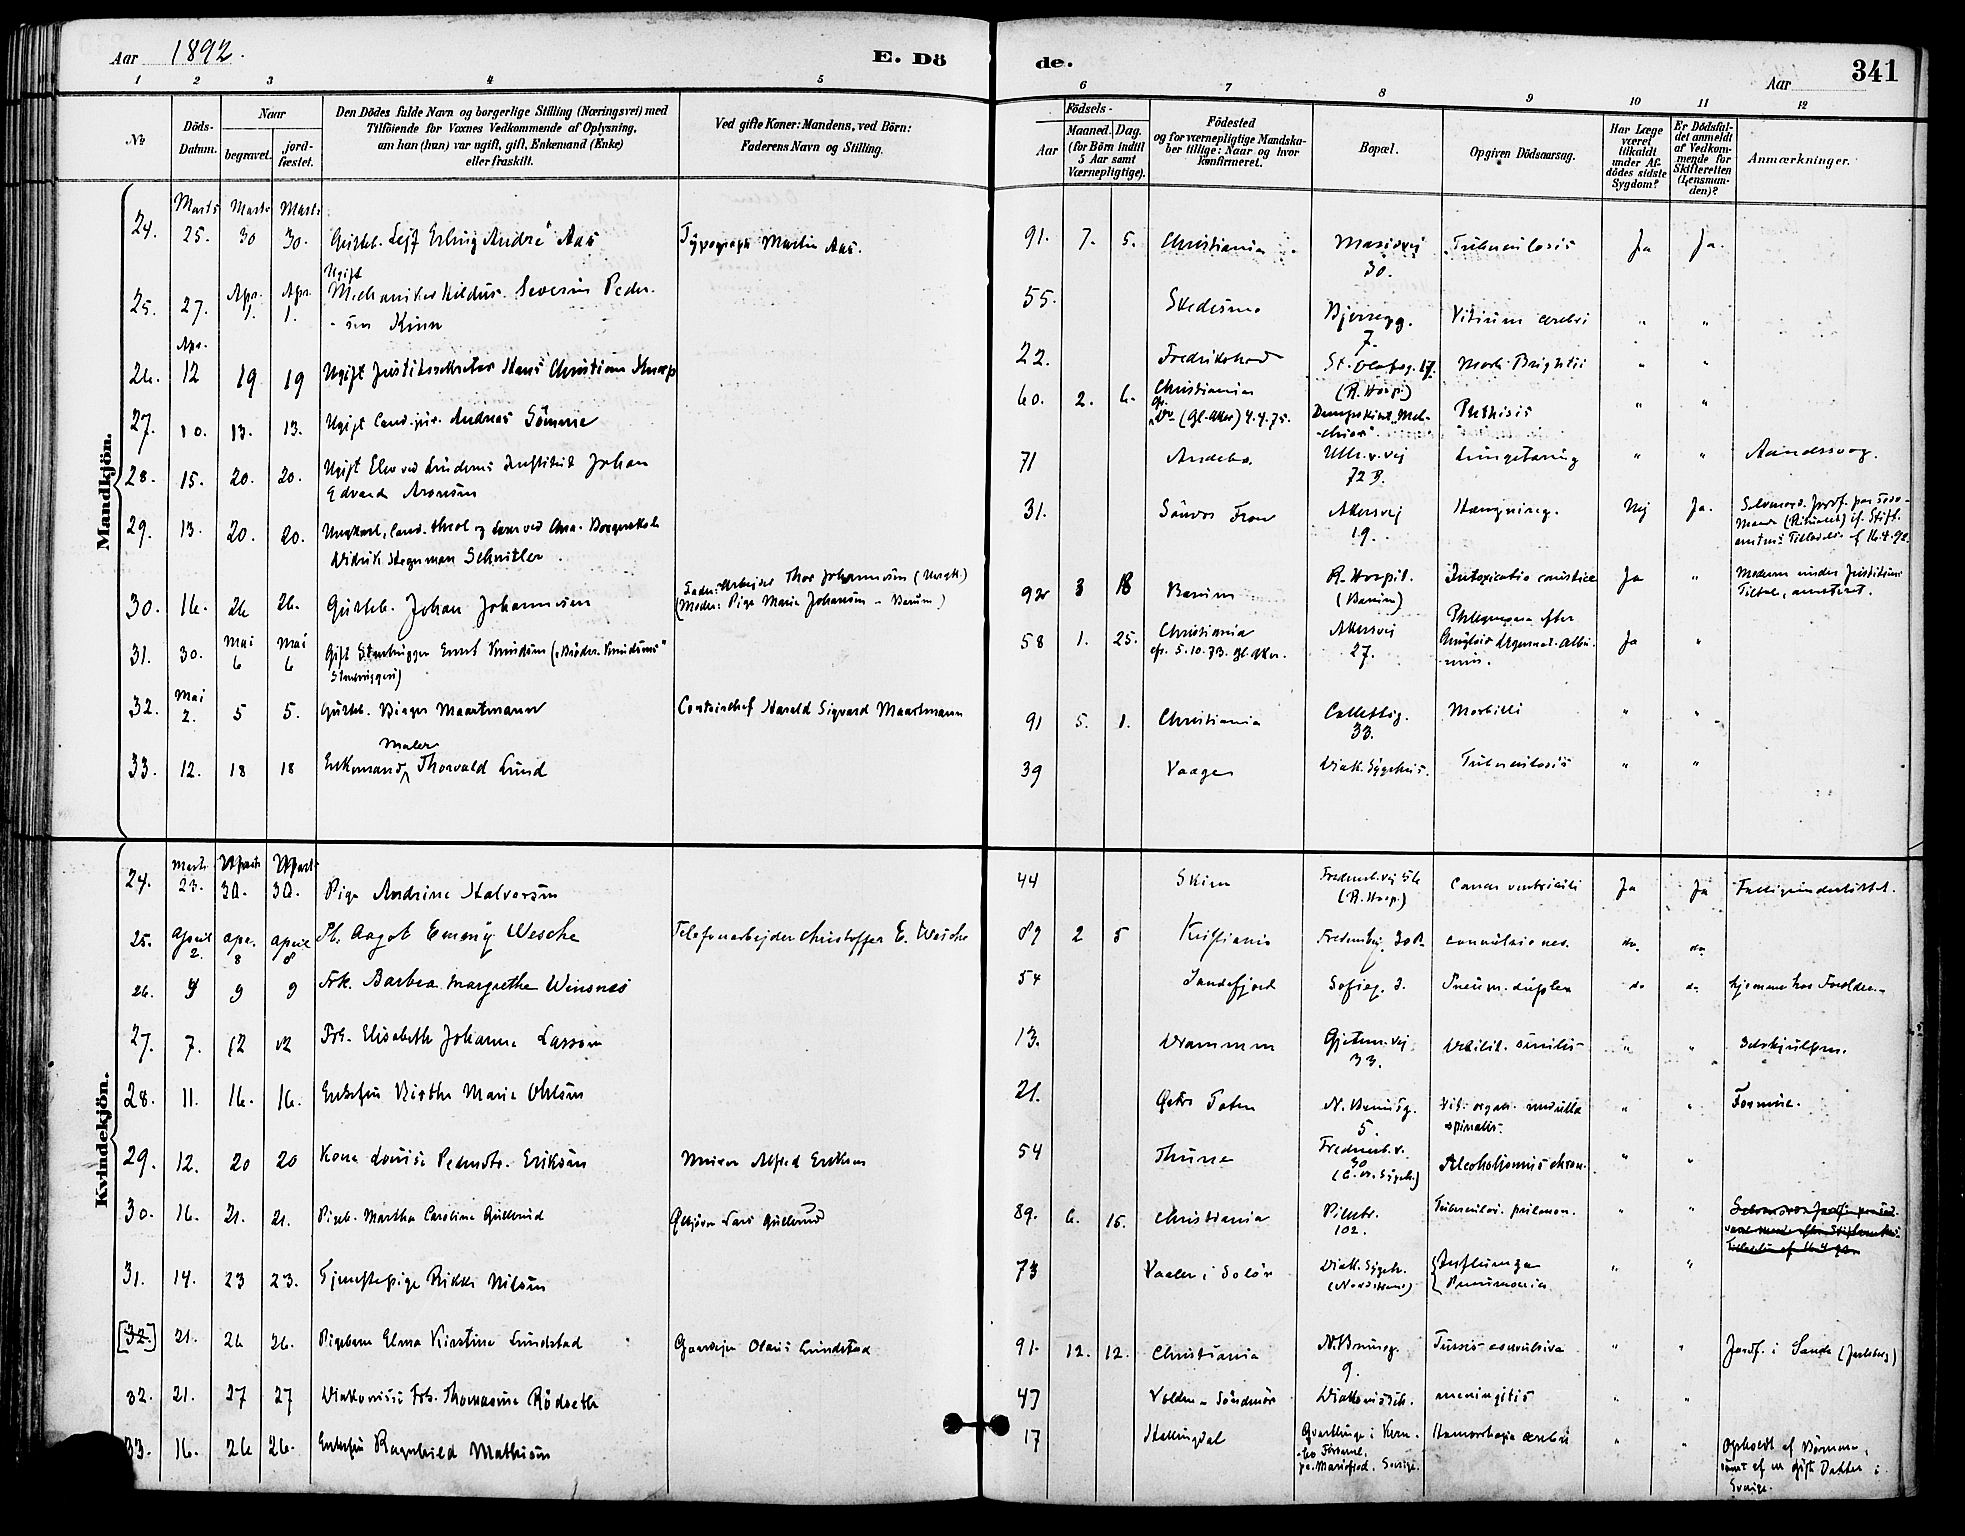 Aar 1892.
E. Dö
de.
Aar
341
1 2 3 4 5 6 7 8 9 10 11 12
No
Döds-Datum.
Naar
begravet.
jord-fæstet.
Den Dödes fulde Navn og borgerlige Stilling (Næringsvei) med
Tilföiende for Voxnes Vedkommende af Oplysning,
om han (hun) var ugift, gift, Enkemand (Enke)
eller fraskilt.
Ved gifte Koner: Mandens, ved Börn:
Faderens Navn og Stilling.
Födsels-
Aar
Maaned. Dag.
(for Börn indtil
5 Aar samt
Værnepligtige).
Födested
og for værnepligtige Mandska-
ber tillige: Naar og hvor
konfirmeret.
Bopæl.
Opgiven Dödsaarsag.
Har Læge
været
tilkaldt
under Af-
dödes sidste
Sygdom?
Er Dödsfal-
det anmeldt
af Vedkom-
mende for
Skifteretten
(Lensman-
den)?
Anmærkninger.
Mandkjön.
Marts Marts Marts
24. 25. 30 30. Gutteb. Leif Erling André Aas Typograph Martin Aas. 91. 7. 5. Christiania Maridvej Tuberculosis Ja Ja.
30.
Ugift
25. 27. Apr. 1. Apr. 1. Mechaniker Kildus. Severin Peder- 55. Skedsmo Bjerregg. Vitium cerebri " "
-sen Kinn 7.
Apr.
26. 12 19 19 Ugift Justitssekretær Hans Christian Knap 22. Fredrikshad St. Olafsg. 17. Morb. Brightii " "
(R. Hosp.)
27. 10. 13. 13. Ugift Cand. jur. Andreas Sömme 60. 2. 6. Christiania Dampskibet "Mel- Phthisis " "
(Gl. Aker) 4.4.75. -chior".
28. 15. 20. 20. Ugift Elev ved Lindems Institut Johan 71 Andebo Ull.v.vej Lungetæring " " Aandssvag.
Edvard Aronsen 72 B.
29. 13. 20. 20. Ungkarl, Cand. theol og Lærer ved Ana. Borgerskole 31. Söndre Fron Akersvej Hængning. Nej Ja.
Didrik Stegeman Schnitler. 19.
30. 16. 26 26. Gutteb. Johan Johannesen Fader: Arbejder Thor Johannesen 92 3 18 Bærum R. Hospit. Intoxicatio Ja " Moderen under Justitiens
(Moder: Pige Marie Johansen - Bærum) (Bærum) Tiltale, arresteret.
31. 30. Mai 6 Mai 6 Gift Stenhugger Ernst Knudsen ("Brödr. Knudsens" 58 1. 25. Christiania Akersvej Ja "
Stenhuggeri) 5.10.73. gl. Aker. 27.
32. Mai 2. 5 5. Gutteb. Birger Maartmann Contorchef Harald Sigvard Maartmann 91 5. 1. Christiania Calletsg. Morbilli " "
33.
Maler
33. 12. 18 18 Enkemand Thorvald Lund 39 Vaage Diak. Sygehus. Tuberculosis " "
Kvindekjön.
24. Marts 23. Marts 30. Marts 30. Pige Andrine Halvorsen 44 Skien Fredensb.vej Cancer ventriculi Ja Ja Fattigunderstöttet.
(R. Hosp.)
25. April 2. Apr. 8 April 8 Pb. Aagot Emmy Wesche Telefonarbejder Christoffer E. Wesche 89 2 5 Kristiania Fredensbj. 30 B. convulsiones. do. do.
26. 4 9 9 Frk. Barbra Margrethe Winsnes 54 Sandefjord Sofieg. 3. Pneum. duplex do do hjemme hos Forældre.
27. 7. 12 12 Frk. Elisabeth Johanne Larsen 13. Drammen Gjetem.vej Debilit. senilis " " Selvhjulpen.
33.
28. 11. 16. 16. Enkefru Birthe Marie Ohlsen 21. Östre Toten N. Bærumsg. Vit. organ. medulla " " Formue.
5. spinalis.
29. 12. 20 20 Kone Louise Pedersdtr. Eriksen Murer Alfred Eriksen 54 Thune Fredensb.v. Alcoholismus chron. " "
30
30. 16. 21. 21. Pigeb. Martha Caroline Gullerud Ölkjörer Lars Gullerud 89. 6. 15. Christiania Pilestr. Tuberculos. pulmon. " "
102.
31. 14. 23 23. Tjenestepige Rikke Nilsen 73 Vaaler i Solör Diak. Sygeh. Influenza " "
(Nordstrand) Pneumonia
[32.] 21. 26 26. Pigebarn Elma Kirstine Lundstad Gaardejer Olaus Lundstad 91. 12. 12. Christiania N. Bruneg. Tussis convulsiva " " Jordf. i Sande (Jarlsberg)
9.
32. 21. 27 27 Diakonisse Frk. Thomasine Rödseth 47 Volden - Söndmör Diakonisseh. meningitis " "
33. 16. 26 26. Enkefru Ragnhild Mathisen 17 Hallingdal Hæmorrhagia cerebri " " Opholdt af Börnene,
samt af en gift Datter i
Sverige.